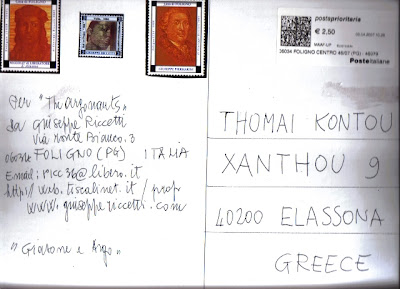 postaprioritaria
€ 2,50
06034 FOLIGNO CENTRO
Posteitaliane
Per "The argonauts"
da Giuseppe Riccetti
via Monte Bianco. 3
06034 FOLIGNO (PG) ITALIA
Email: ricc36@libero.it
http// web.tiscalinet.it / prof
www.giuseppericcetti.com
"Giasone e Argo"
THOMAI KONTOU
XANTHOU 9
40200 ELASSONA
GREECE